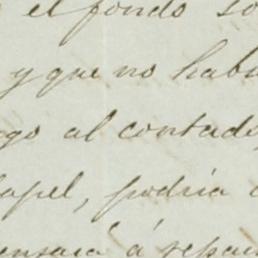 el fondo so
y que no hab
go al contado
papel, podria
ensará á repar